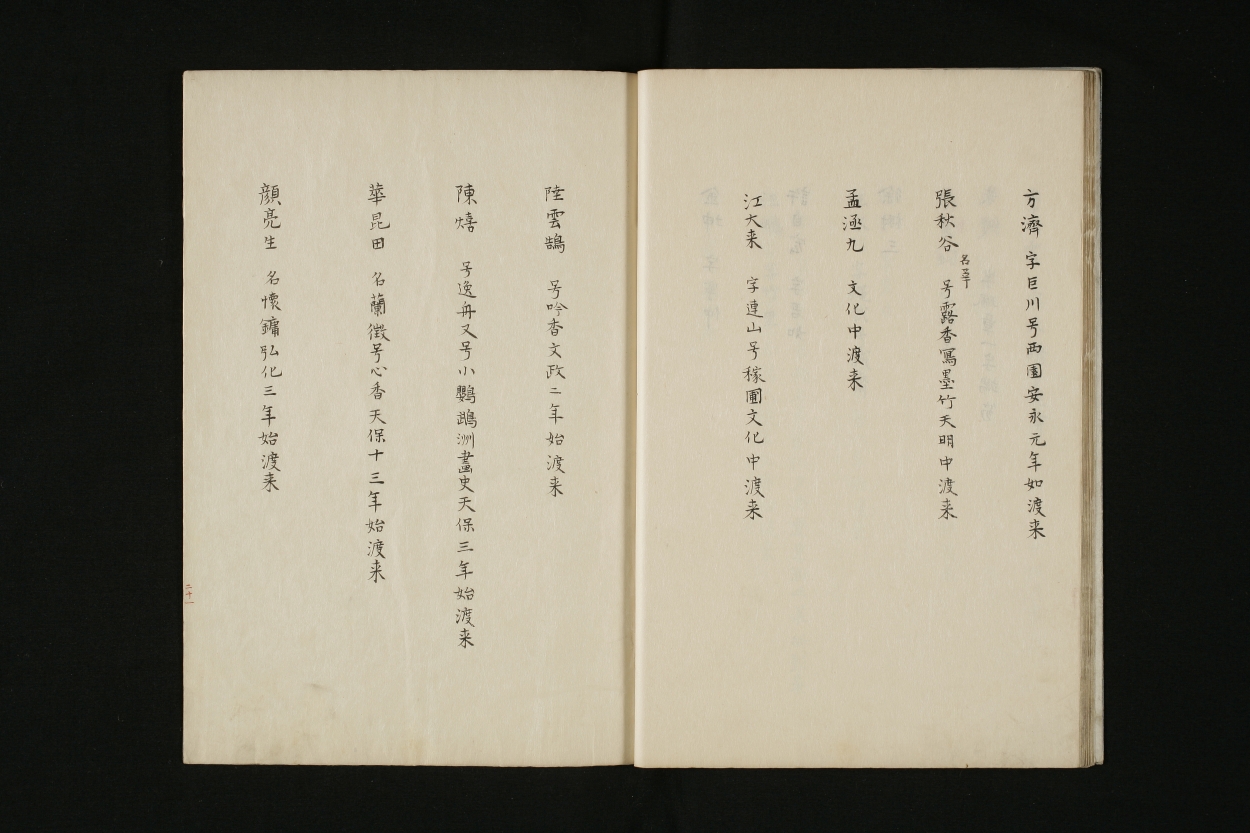 方濟 字巨川号西園安永元年如渡来
張秋谷 名莘 号露香寫墨竹天明中渡来
孟涵九 文化中渡来
江大来 字連山号稼圃文化中渡来
陸雲鵠 号吟香文政二年始渡来
陳熺 号逸舟又号小鸚鵡洲畫史天保三年始渡来
華昆田 名蘭徴号心香天保十三年始渡来
顔亮生 名懷鏞弘化三年始渡来
二十一